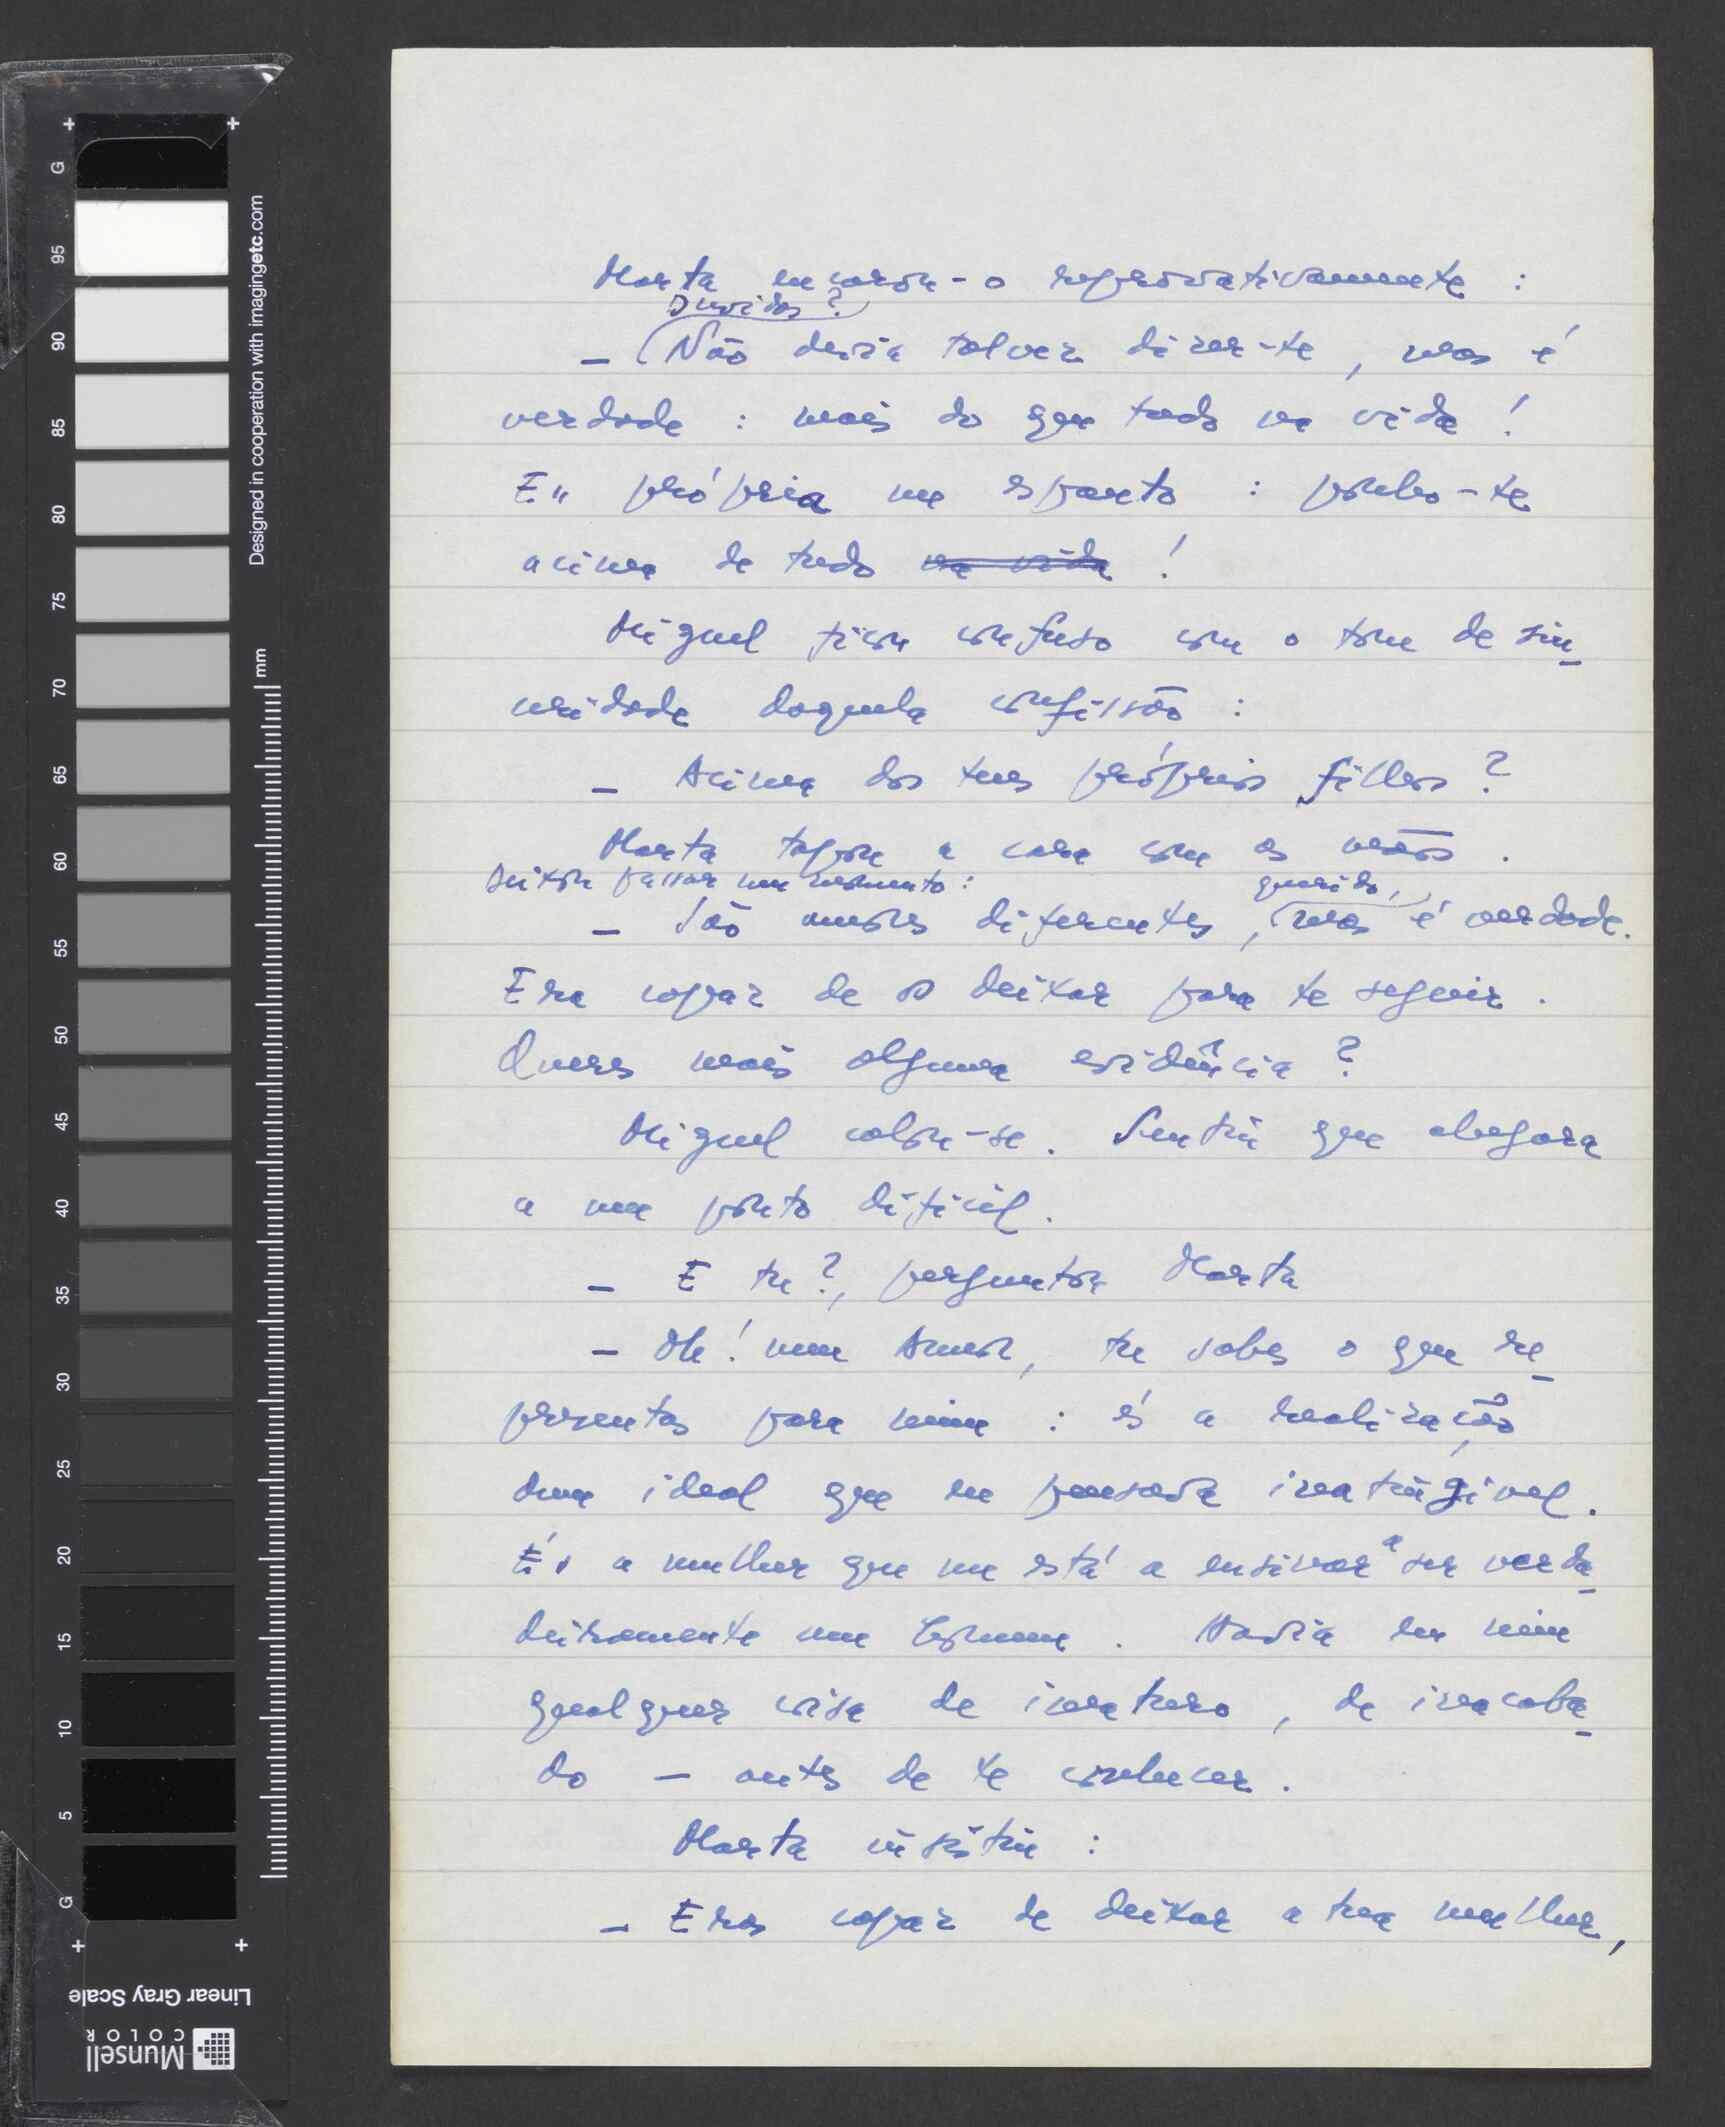 Marta encarou-o reprovativamente :
Duvidas ?
— Não devia talvez dizer-te , mas é
verdade : mais do que tudo na vida !
Eu própria me espanto : ponho-te
acima de tudo na vida !
Miguel ficou confuso com o tom de sin_
ceridade daquela confissão :
— Acima dos teus próprios filhos ?
Marta tapou a cara com as mãos .
Deixou passar um momento :
querido,
— São amores diferentes , mas é verdade.
Era capaz de os deixar para te seguir .
Queres mais alguma evidência ?
Miguel calou-se . Sentiu que chegara
a um ponto difícil .
— E tu ?, perguntou Marta
— Oh ! meu Amor, tu sabes o que re_
presentas para mim : és a realização
dum ideal que eu pensava inatingível .
És a mulher que me está a ensinar a ser verda_
deiramente um homem . Havia em mim
qualquer coisa de imaturo , de inacaba_
do — antes de te conhecer .
Marta insistiu :
— Eras capaz de deixar a tua mulher ,
G
95
90
85
80
75
70
65
60
55
50
45
40
35
30
25
20
15
10
5
G
Designed in cooperation with imagingetc.com
mm
Linear Gray Scale
Munsell
COLOR